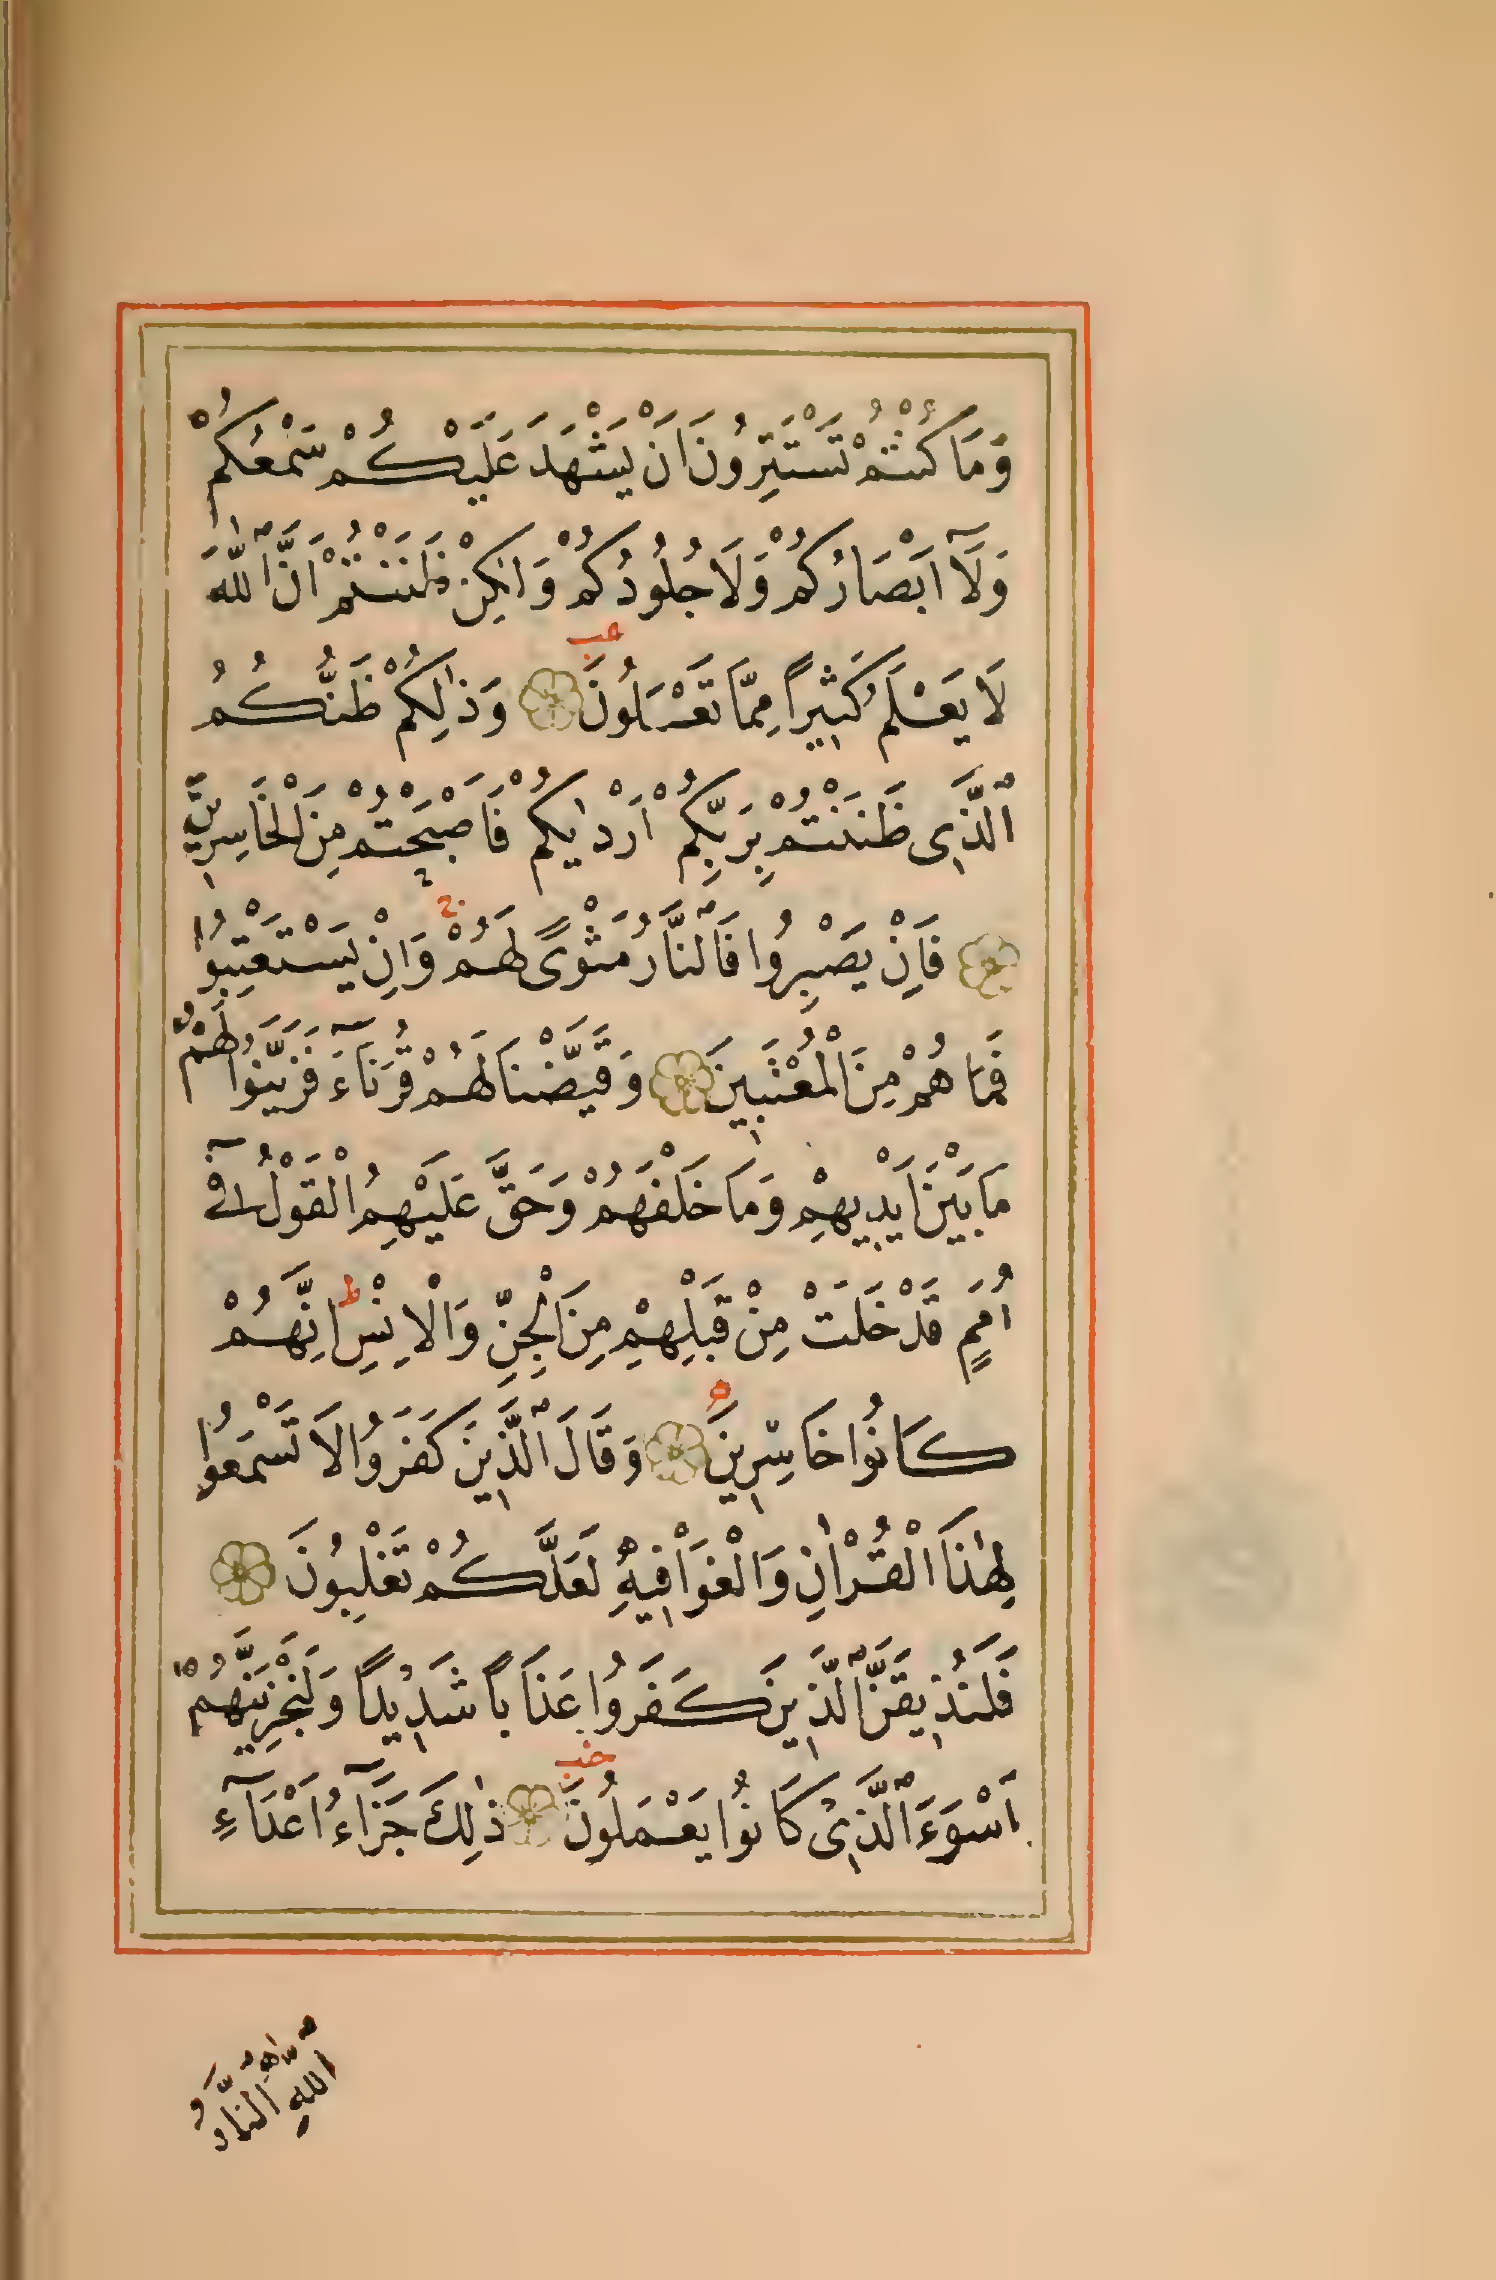 وَمَا كُنْتُمْ تَسْتَتِرُونَ اَنْ يَشْهَدَ عَلَيْكُمْ سَمْعُكُمْ
وَلَآ اَبْصَارُكُمْ وَلَا جُلُودُكُمْ وَلٰكِنْ ظَنَنْتُمْ اَنَّ اللّٰهَ
لَا يَعْلَمُ كَثِيرًا مِمَّا تَعْمَلُونَ ۝ وَذٰلِكُمْ ظَنُّكُمُ
الَّذِى ظَنَنْتُمْ بِرَبِّكُمْ اَرْدٰيكُمْ فَاَصْبَحْتُمْ مِنَ الْخَاسِرِينَ
۝ فَاِنْ يَصْبِرُوا فَالنَّارُ مَثْوًى لَهُمْ وَاِنْ يَسْتَعْتِبُوا
فَمَا هُمْ مِنَ الْمُعْتَبِينَ ۝ وَقَيَّضْنَا لَهُمْ قُرَنَآءَ فَزَيَّنُوا لَهُمْ
مَا بَيْنَ اَيْدِيهِمْ وَمَا خَلْفَهُمْ وَحَقَّ عَلَيْهِمُ الْقَوْلُ فِىٓ
اُمَمٍ قَدْ خَلَتْ مِنْ قَبْلِهِمْ مِنَ الْجِنِّ وَالْاِنْسِ ط اِنَّهُمْ
كَانُوا خَاسِرِينَ ۝ وَقَالَ الَّذِينَ كَفَرُوا لَا تَسْمَعُوا
لِهٰذَا الْقُرْاٰنِ وَالْغَوْا فِيهِ لَعَلَّكُمْ تَغْلِبُونَ ۝
فَلَنُذِيقَنَّ الَّذِينَ كَفَرُوا عَذَابًا شَدِيدًا وَلَنَجْزِيَنَّهُمْ
اَسْوَءَ الَّذِى كَانُوا يَعْمَلُونَ ۝ ذٰلِكَ جَزَآءُ اَعْدَآءِ
اللّٰهِ النَّارُ